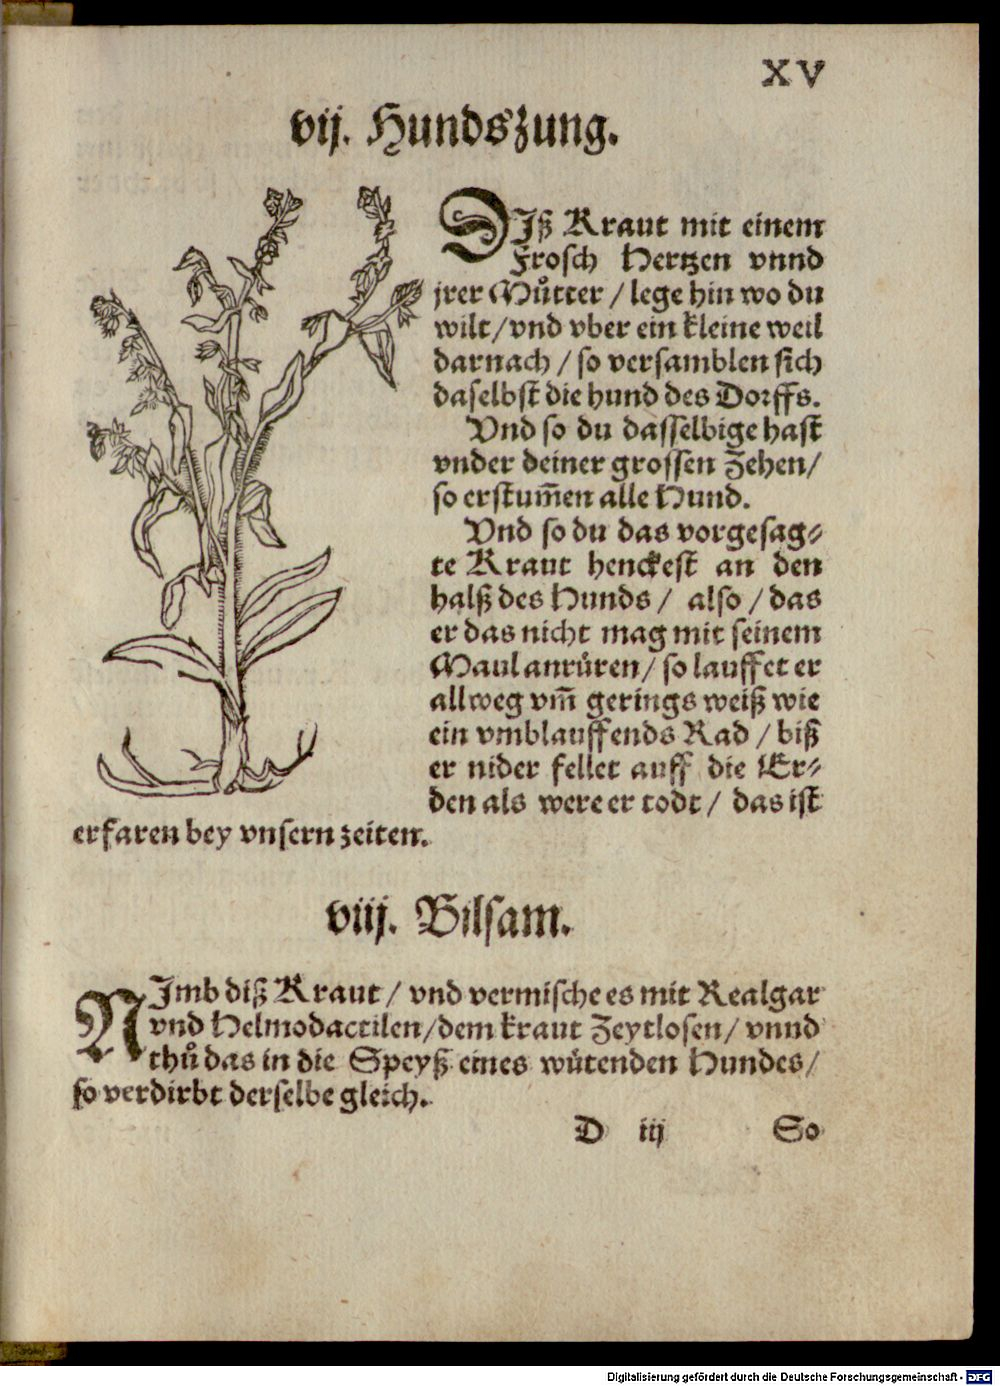 XV
vij. Hundszung.
DIß Kraut mit einem
Frosch Hertzen vnnd
jrer Můtter / lege hin wo du
wilt / vnd vber ein kleine weil
darnach / so versamblen sich
daselbst die hund des Dorffs.
Vnd so du dasselbige hast
vnder deiner grossen Zehen /
so erstum̃en alle Hund.
Vnd so du das vorgesag⸗
te Kraut henckest an den
halß des Hunds / also / das
er das nicht mag mit seinem
Maul anrüren / so lauffet er
allweg vm̃ gerings weiß wie
ein vmblauffends Rad / biß
er nider fellet auff die Er⸗
den als were er todt / das ist
erfaren bey vnsern zeiten.
viij. Bilsam.
NImb diß Kraut / vnd vermische es mit Realgar
vnd Helmodactilen / dem kraut Zeytlosen / vnnd
thů das in die Speyß eines wůtenden Hundes /
so verdirbt derselbe gleich.
D iij So
Digitalisierung gefördert durch die Deutsche Forschungsgemeinschaft - DFG